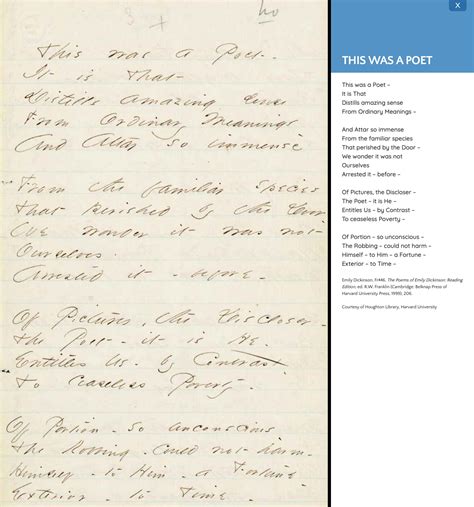 This was a Poet -
It is That -
Distills amazing sense
From Ordinary Meanings
And Attar so immense
From the familiar species
That perished by the Door
We wonder it was not
Ourselves
Arrested it - before -
Of Pictures, the Discloser -
The Poet - it is He -
Entitles Us - by Contrast -
To ceaseless Poverty -
Of Portion - so unconscious
The Robbing - could not harm -
Himself - to Him - a Fortune -
Exterior - to Time -
X
THIS WAS A POET
This was a Poet –
It is That
Distills amazing sense
From Ordinary Meanings –
And Attar so immense
From the familiar species
That perished by the Door –
We wonder it was not
Ourselves
Arrested it – before –
Of Pictures, the Discloser –
The Poet – it is He –
Entitles Us – by Contrast –
To ceaseless Poverty –
Of Portion – so unconscious –
The Robbing – could not harm –
Himself – to Him – a Fortune –
Exterior – to Time –
Emily Dickinson, Fr446, The Poems of Emily Dickinson: Reading
Edition, ed. R.W. Franklin (Cambridge: Belknap Press of
Harvard University Press, 1999), 206.
Courtesy of Houghton Library, Harvard University